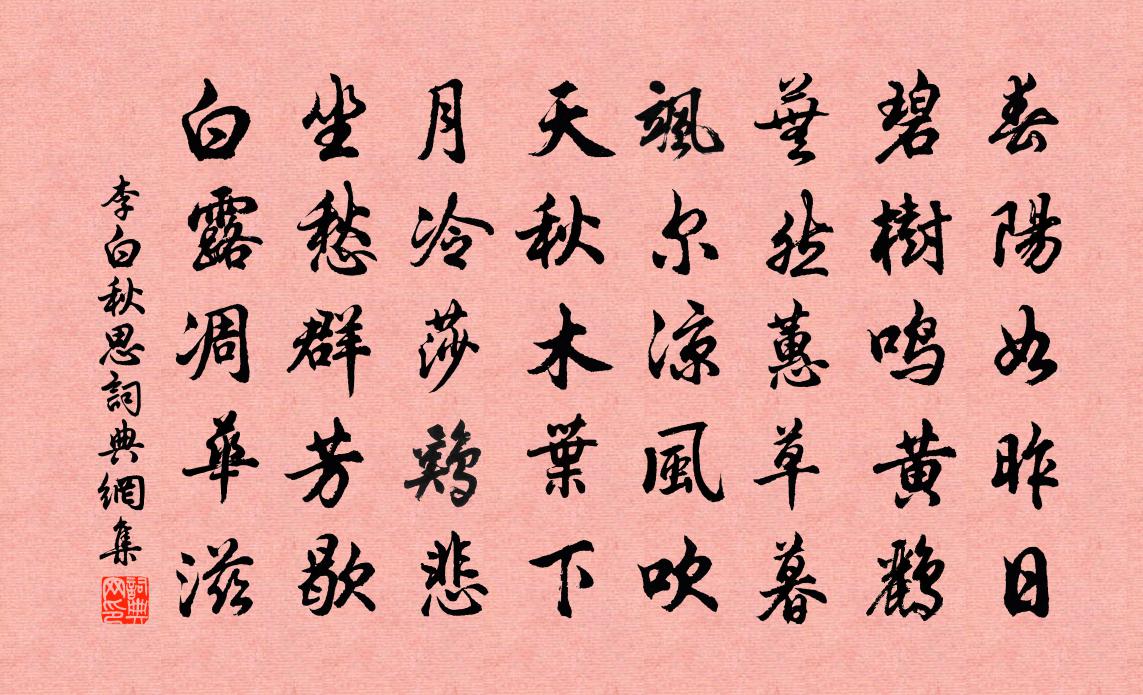 春陽如昨日
碧樹鳴黄鸝
蕪然蕙草暮
颯尔涼風吹
天秋木葉下
月冷莎鷄悲
坐愁群芳歇
白露凋華滋
李白秋思詞典網集
詞典网印